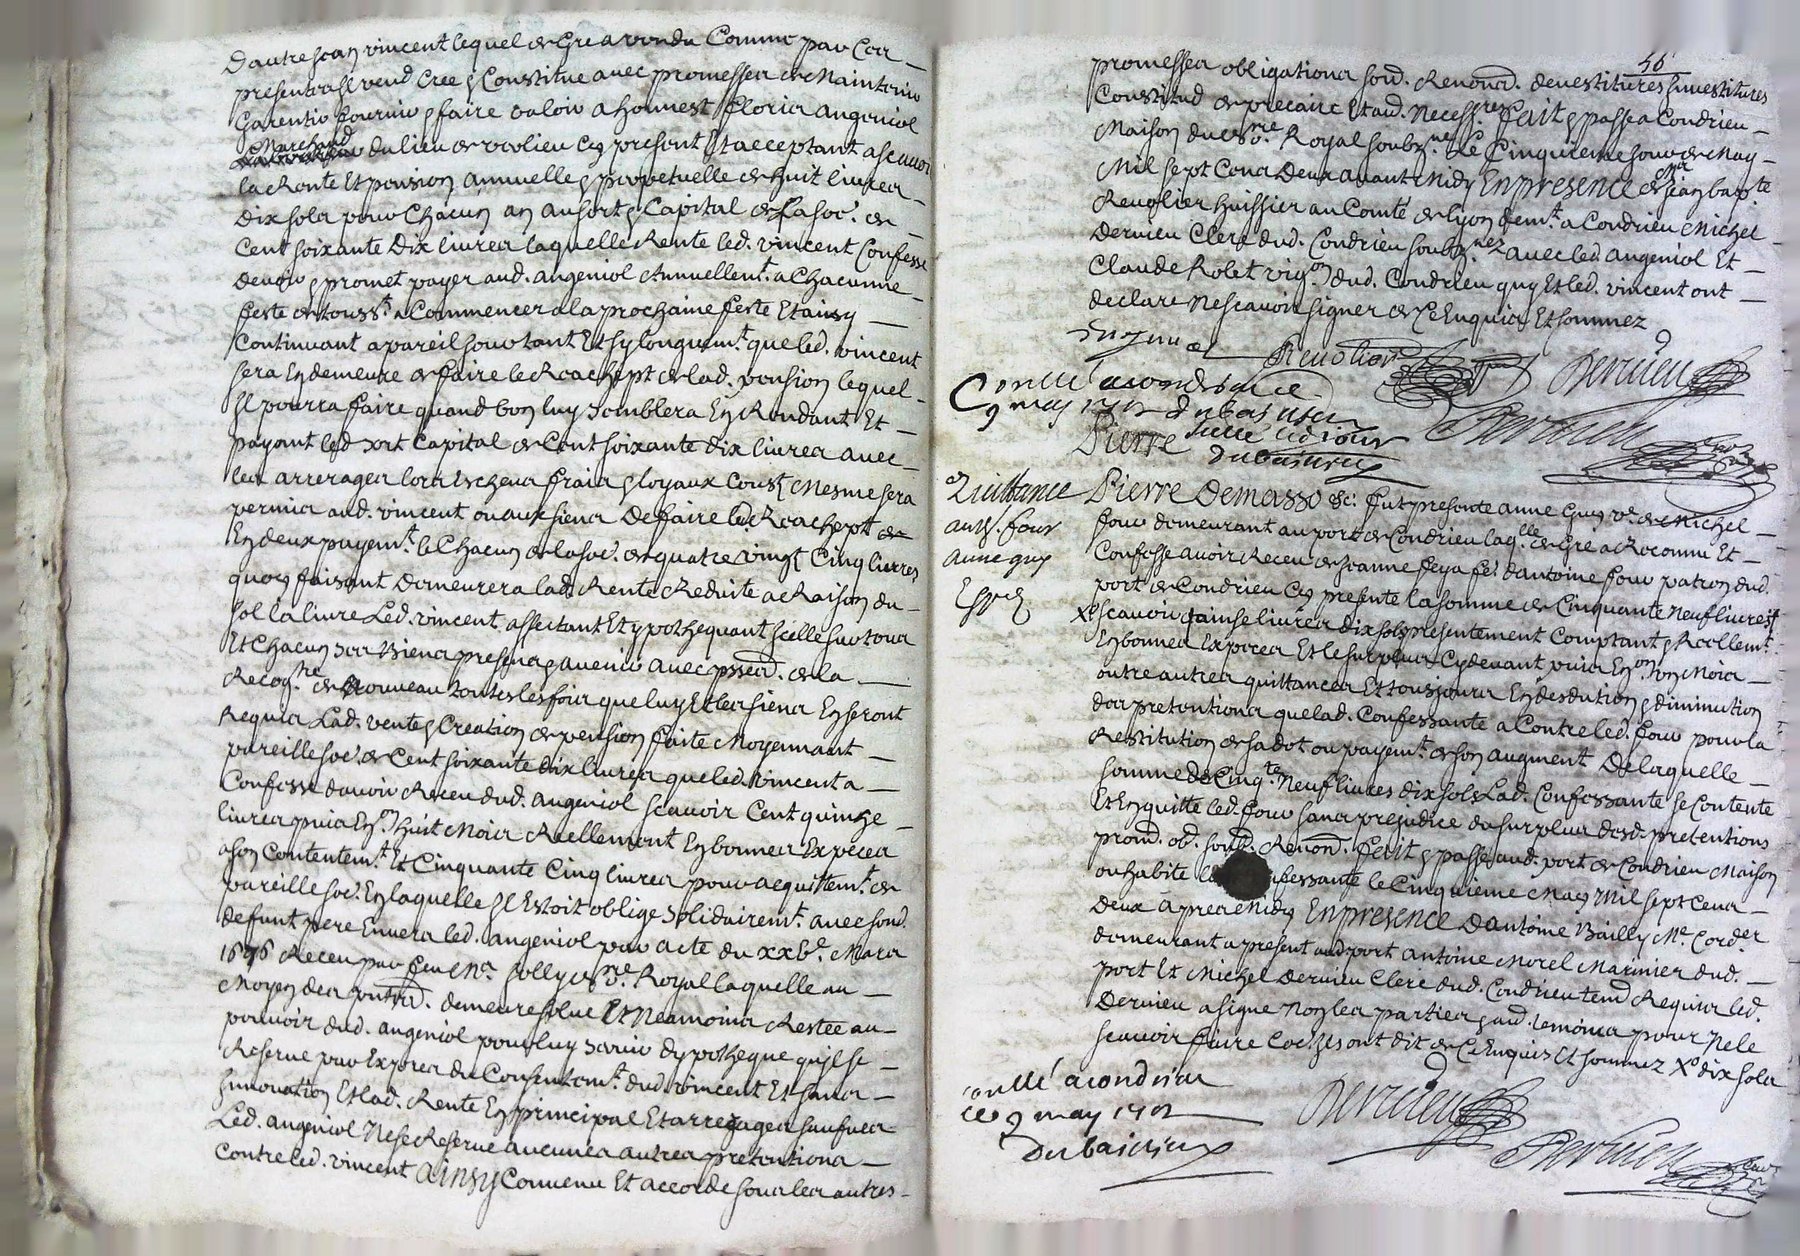 Dautre Jean vincent lequel de Gré a vendu Comme par Ces
presentes Il vend Cree & Constitue avec promesses de Maintenir
Garentir fournir & faire valoir a honnest floris angeniol
Marchand
du lieu de Cy present Et acceptant a scavoir
la Rente Et pension annuelle & perpetuelle de huit livres
Dix sols pour Chacun an au sort & Capital de La soe. de
Cent soixante Dix livres laquelle Rente led. vincent Confesse
devoir & promet payer aud. angeniol Annuellemt. a Chacunne
feste de touss.t a Commencer a la prochaine feste Et ainsy
Continuant a pareil jour tant Et sy longuemt. que led. vincent
sera En demeure de faire le Reachept de lad. pension lequel
Il pourra faire quand bon luy semblera En Rendant Et
payant led sort Capital de Cent soixante dix livres avec
les arrerages lors Escheus frais & loyaux Coust Mesme sera
permis aud. vincent ou aux siens De faire led Reachept de
En deux payemt. le Chacun de la soe. de quatre vingt Cinq livres
quoy faisant Demeurera lad. Rente Reduite a Raison du
sol la livre Led. vincent affectant Et ypothequant Icelle sur tous
Et Chacun ses Biens presens & avenir avec de la
Recog.re de Nouveau toutes les fois que luy Et les siens En seront
Requis Lad. vente & Creation de pension faite Moyennant
pareille soe. de Cent soixante dix livres que led. vincent a
Confesse davoir Receu dud. angeniol scavoir Cent quinze
livres puis En.on huit Mois Reellement En bonnes Expeces
a son Contentemt. Et Cinquante Cinq livres pour acquittemt. de
pareille soe. En laquelle Il Estoit oblige solidairemt. avec sond.
defunt pere Envers led. angeniol par acte du xxve. Mars
1696 Receu par feu Me. Jolly Royal laquelle au
Moyen des demeure solue Et Neamoins Restee au
pouvoir dud. angeniol pour luy servir dypotheque quil se
Reserve par Expres du Consentemt. dud vincent Et sans
Innovation Et lad. Rente En principal Et arrerages sauf
Led. angeniol Ne se Reserve aucunes autres pretentions
Contre led. vincent ainsy Convenu Et accorde sous les autres
56
promesses obligations soud. Renond. devestitures Investitures
Constitud de precaire Et aud. Necess.res fait & passe a Condrieu
Maison du Royal soubz.ne Le Cinquieme jour de May
Mil sept Cens Deux avant Midy En presence de Me Jean bap.te
Revolier huissier au Comté de lyon demt. a Condrieu Michel
Dervieu Clerc dud. Condrieu soubz.nez avec led. angeniol Et
Claude Robet vig.on dud. Condrieu quy Et led. vincent ont
declare Ne scavoir signer de Ce Enquis Et sommez
Revolier Dervieu
Conllé a condrieu ce
9 may 1702
Pierre
Quittance
anth. four
anne guy
Pierre Demasso &c: fut presente anne Guy ve. de Michel
four demeurant au port de Condrieu laq.lle de Gré a Reconnu Et
Confesse avoir Receu de Jeanne feya fe. dantoine four patron dud.
port de Condrieu Cy presente la somme de Cinquante Neuf livres
Xe scavoir livres dix sols presentement Comptant & Reellemt.
En bonnes Expeces Et le surplus Cydevant puis En.on Mois
outre autres quittances Et tousjours En desdution & diminution
des pretentions que lad. Confessante a Contre led. four pour la
Restitution de sa dot ou payemt. de son augment Delaquelle
somme de Cinq.te Neuf livres dix sols Lad. Confessante se Contente
Et En quitte led. four sans prejudice du surplus desd. pretentions
prom. ob. soub. Renond. fait & passe aud. port de Condrieu Maison
ou habite fessante le Cinquieme May Mil sept Cens
Deux apres Midy En presence Dantoine Bailly Me. Cord.er
demeurant a present aud port antoine Morel Marinier dud.
port Et Michel Dervieu Clerc dud. Condrieu Requis led.
Dervieu a signe Non les parties & aud. temoins pour Ne le
scavoir faire Comme Ils ont dit de Ce Enquis Et sommez Xe dix sols
Conllé a condrieu
ce 9 may 1702
Dervieu